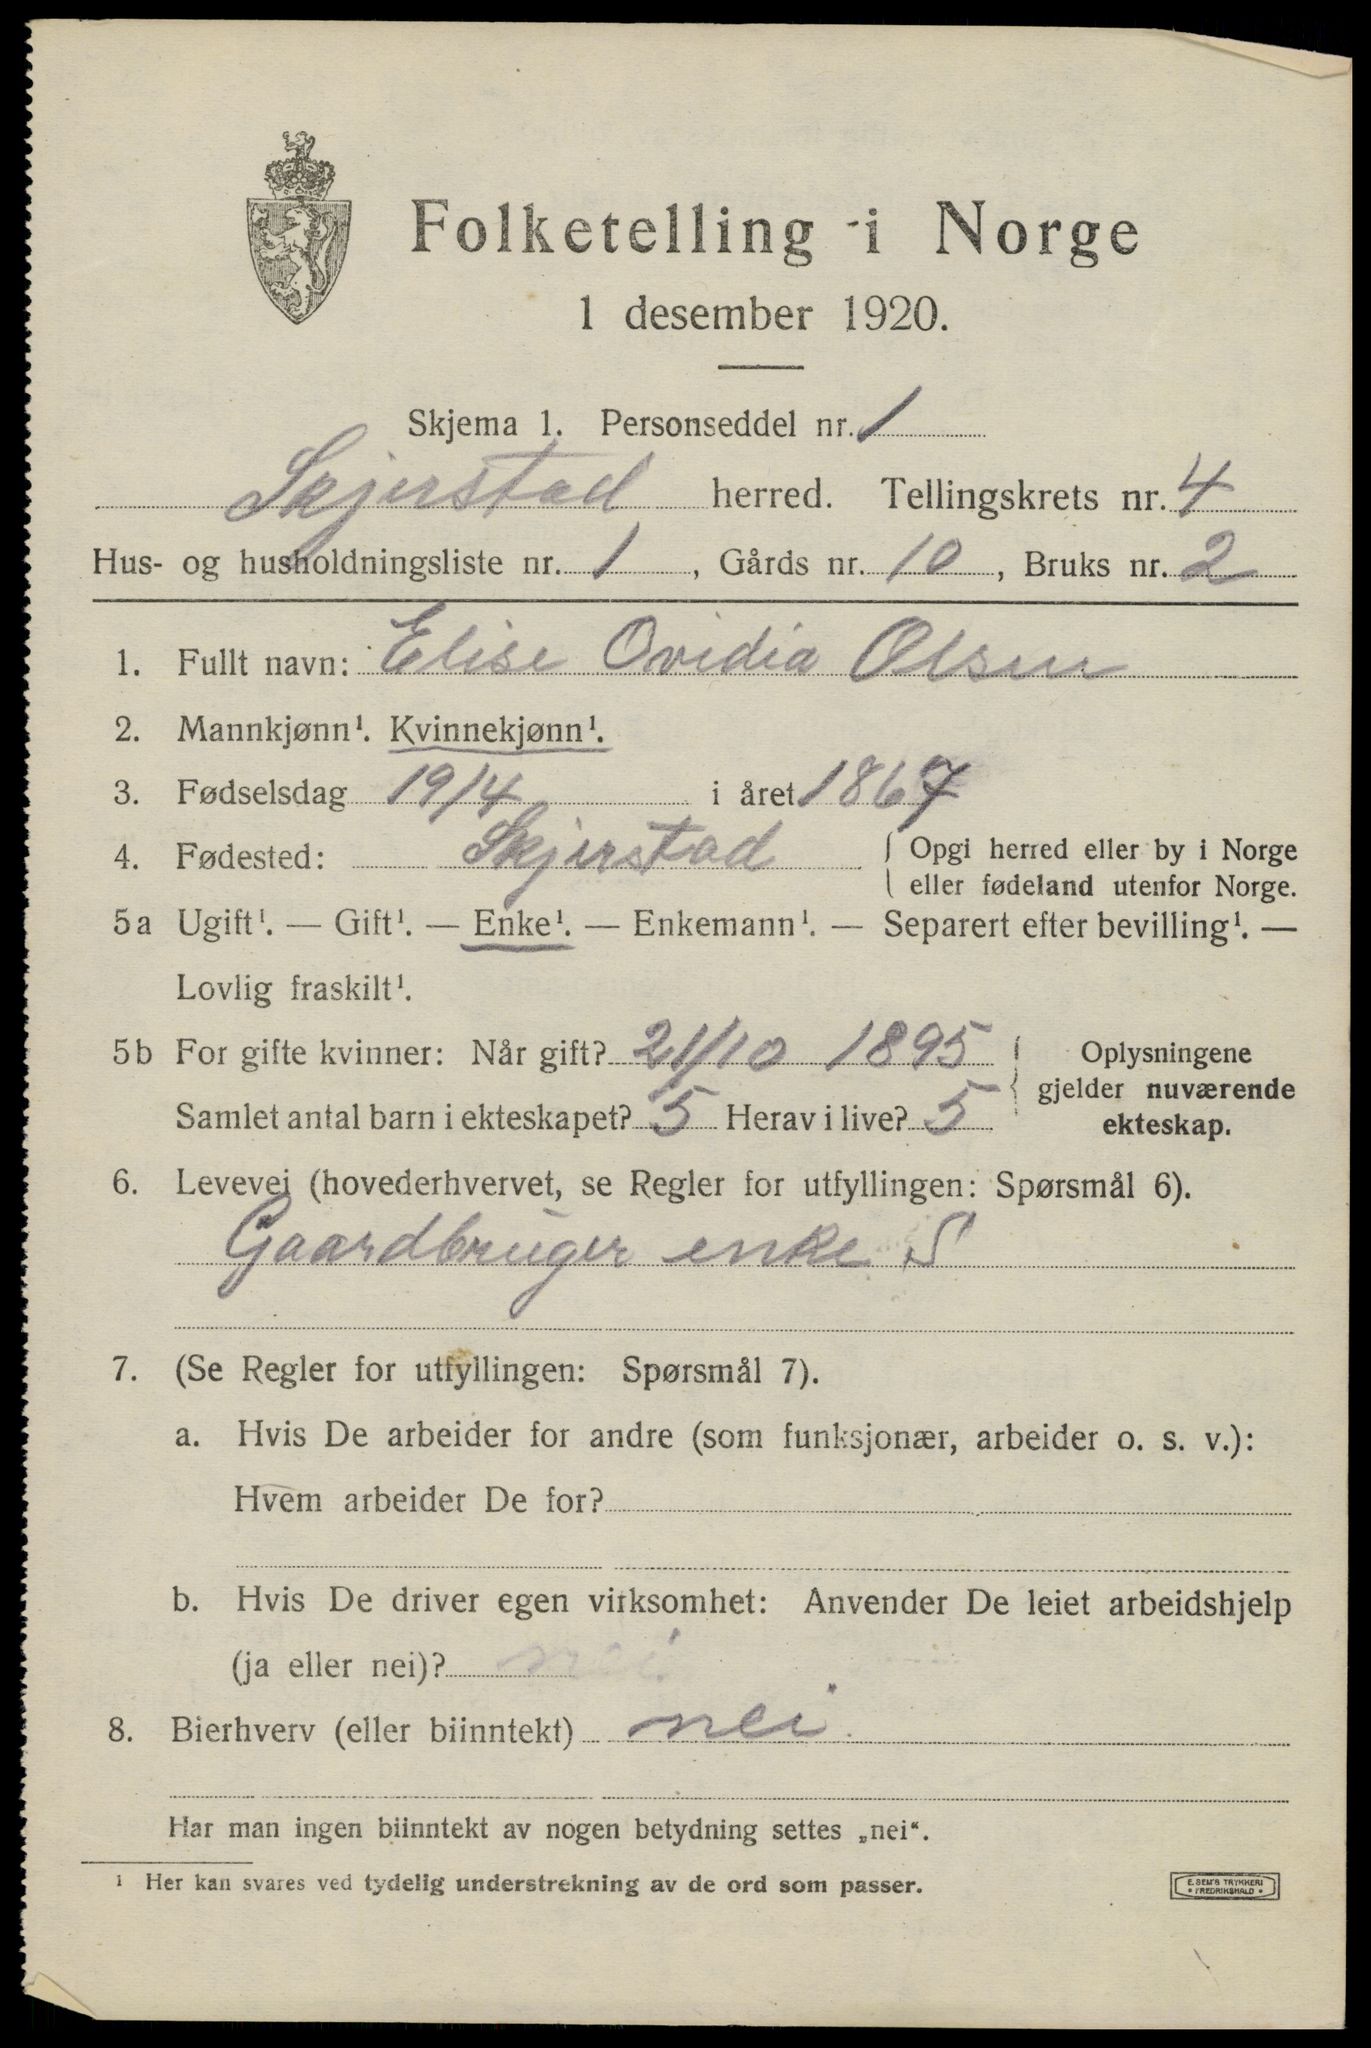 Folketelling i Norge
1 desember 1920.
Skjema 1. Personseddel nr. 1
Skjerstad herred. Tellingskrets nr. 4
Hus- og husholdningsliste nr. 1, Gårds nr. 10, Bruks nr. 2
1. Fullt navn: Elise Ovidia Olsen
2. Mannkjønn¹. Kvinnekjønn¹.
3. Fødselsdag 19/4 i året 1867
4. Fødested: Skjerstad { Opgi herred eller by i Norge
eller fødeland utenfor Norge.
5a Ugift¹. — Gift¹. — Enke¹. — Enkemann¹. — Separert efter bevilling¹. —
Lovlig fraskilt¹.
5b For gifte kvinner: Når gift? 21/10 1895 { Oplysningene
gjelder nuværende
Samlet antal barn i ekteskapet? 5 Herav i live? 5 ekteskap.
6. Levevei (hovederhvervet, se Regler for utfyllingen: Spørsmål 6).
Gaardbruger enke S
7. (Se Regler for utfyllingen: Spørsmål 7).
a. Hvis De arbeider for andre (som funksjonær, arbeider o. s. v.):
Hvem arbeider De for?
b. Hvis De driver egen virksomhet: Anvender De leiet arbeidshjelp
(ja eller nei)? nei
8. Bierhverv (eller biinntekt) nei
Har man ingen biinntekt av nogen betydning settes „nei“.
¹ Her kan svares ved tydelig understrekning av de ord som passer.
E. SEM'S TRYKKERI
• FREDRIKSHALD •